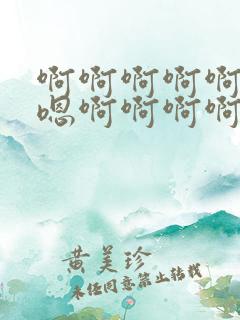 啊啊啊啊啊
嗯啊啊啊啊
黄美珍
未经同意禁止转载